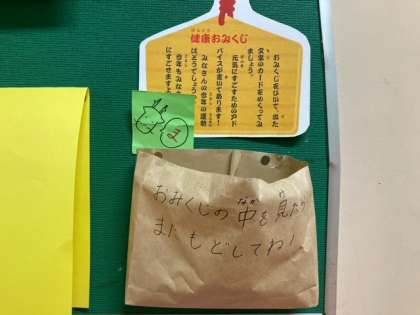 健康おみくじ
おみくじをひいて、出た
のカードをめくってみ
ましょう。
元気にすごすためのアド
バイスが書いてあります！
みなさんの今年の運勢
はどうでしょう
今年もみな
にすごせますよ
ま
おみくじの中を見たら
またもどしてね！